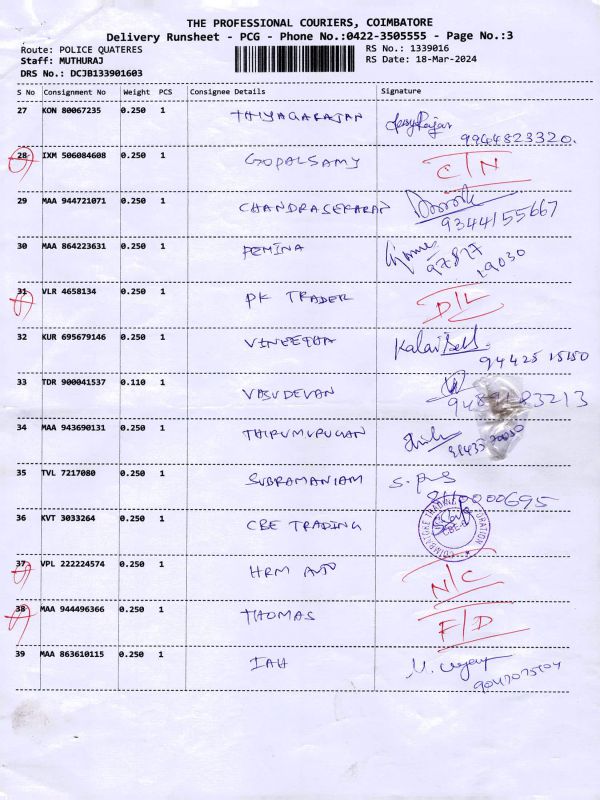 THE PROFESSIONAL COURIERS, COIMBATORE
Delivery Runsheet - PCG - Phone No.:0422-3505555 - Page No.:3
Route: POLICE QUATERES RS No.: 1339016
Staff: MUTHURAJ RS Date: 18-Mar-2024
DRS No.: DCJB133901603
S No Consignment No Weight PCS Consignee Details Signature
27 KON 80067235 0.250 1 THIYAGARAJAN
9944823320.
28 IXM 506084608 0.250 1 GOPALSAMY C/N
29 MAA 944721071 0.250 1 CHANDRASEKARAN
9344155667
30 MAA 864223631 0.250 1 PEMINA
97817
19030
31 VLR 4658134 0.250 1 PK TRADER D/L
32 KUR 695679146 0.250 1 VINEETHA Kalai
94425 15150
33 TDR 900041537 0.110 1 VASUDEVAN
34 MAA 943690131 0.250 1 THIRUMURUGAN
35 TVL 7217080 0.250 1 SUBRAMANIAM
36 KVT 3033264 0.250 1 CBE TRADING
COIMBATORE TRADING CORPORATION
37 VPL 222224574 0.250 1 HRM AUTO N/C
38 MAA 944496366 0.250 1 THOMAS F/D
39 MAA 863610115 0.250 1